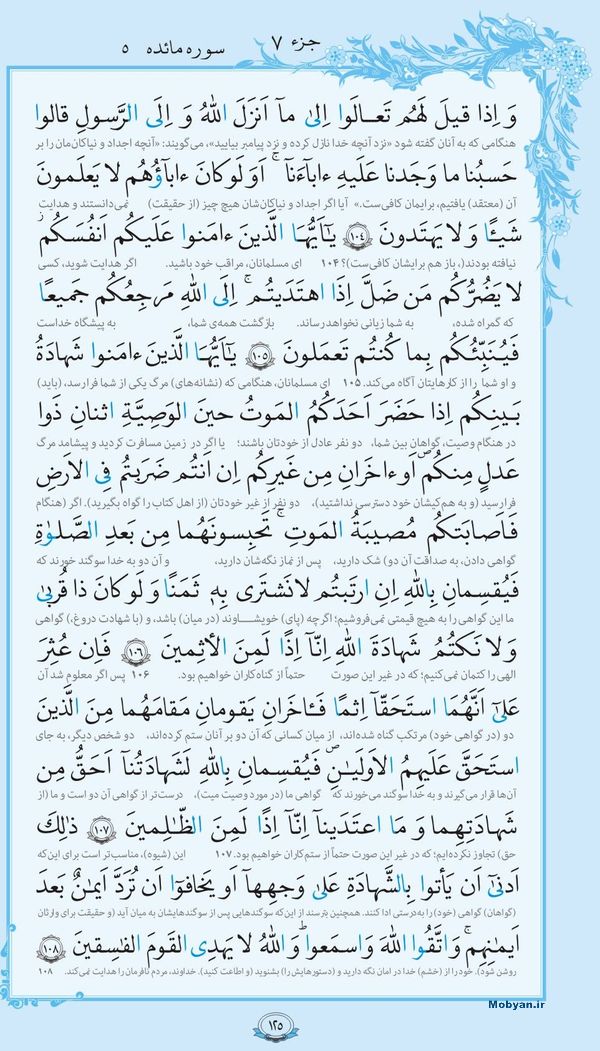 جزء ۷
سوره مائده ۵
وَ اِذا قيلَ لَهُم تَعالَوا اِلىٰ ما اَنزَلَ اللهُ وَ اِلَى الرَّسولِ قالوا
هنگامی که به آنان گفته شود «نزد آنچه خدا نازل کرده و نزد پیامبر بیایید»، می‌گویند: «آنچه اجداد و نیاکان‌مان را بر
حَسبُنا ما وَجَدنا عَلَيهِ ءاباءَنا ۚ اَوَلَو كانَ ءاباؤُهُم لا يَعلَمونَ
آن (معتقد) یافتیم، برایمان کافی‌ست.» آیا اگر اجداد و نیاکان‌شان هیچ چیز (از حقیقت) نمی‌دانستند و هدایت
شَيئًا وَ لا يَهتَدونَ ﴿۱۰۴﴾ ياَيُّهَا الَّذينَ ءامَنوا عَلَيكُم اَنفُسَكُم ۖ
نیافته بودند(، باز هم برایشان کافی‌ست)؟ ۱۰۴ ای مسلمانان، مراقب خود باشید. اگر هدایت شوید، کسی
لا يَضُرُّكُم مَن ضَلَّ اِذَا اهتَدَيتُم ۚ اِلَى اللهِ مَرجِعُكُم جَميعًا
که گمراه شده، به شما زیانی نخواهد رساند. بازگشت همه‌ی شما، به پیشگاه خداست
فَيُنَبِّئُكُم بِما كُنتُم تَعمَلونَ ﴿۱۰۵﴾ ياَيُّهَا الَّذينَ ءامَنوا شَهادَةُ
و او شما را از کارهایتان آگاه می‌کند. ۱۰۵ ای مسلمانان، هنگامی که (نشانه‌های) مرگ یکی از شما فرا رسد، (باید)
بَينِكُم اِذا حَضَرَ اَحَدَكُمُ المَوتُ حينَ الوَصِيَّةِ اثنانِ ذَوا
در هنگام وصیت، گواهان بین شما، دو نفر عادل از خودتان باشند؛ یا اگر در زمین مسافرت کردید و پیشامد مرگ
عَدلٍ مِنكُم اَو ءاخَرانِ مِن غَيرِكُم اِن اَنتُم ضَرَبتُم فِى الاَرضِ
فرارسید (و به هم‌کیشان خود دسترسی نداشتید)، دو نفر از غیر خودتان (از اهل کتاب را گواه بگیرید). اگر (هنگام
فَاَصابَتكُم مُصيبَةُ المَوتِ ۚ تَحبِسونَهُما مِن بَعدِ الصَّلوٰةِ
گواهی دادن، به صداقت آن دو) شک دارید، پس از نماز نگه‌شان دارید، و آن دو به خدا سوگند خورند که
فَيُقسِمانِ بِاللهِ اِنِ ارتَبتُم لا نَشتَرى بِهٖ ثَمَنًا وَ لَو كانَ ذا قُربىٰ ۙ
ما این گواهی را به هیچ قیمتی نمی‌فروشیم؛ اگرچه (پای) خویشاوند (در میان) باشد، و (با شهادت دروغ) گواهی
وَ لا نَكتُمُ شَهادَةَ اللهِ اِنّا اِذًا لَمِنَ الأثِمينَ ﴿۱۰۶﴾ فَاِن عُثِرَ
الهی را کتمان نمی‌کنیم؛ که در غیر این صورت حتماً از گناه‌کاران خواهیم بود. ۱۰۶ پس اگر معلوم شد آن
عَلىٰ اَنَّهُمَا استَحَقّا اِثمًا فَـاخَرانِ يَقومانِ مَقامَهُما مِنَ الَّذينَ
دو (در گواهی خود) مرتکب گناه شده‌اند، از میان کسانی که آن دو بر آنان ستم کرده‌اند، دو شخص دیگر، به جای
استَحَقَّ عَلَيهِمُ الاَولَيٰنِ فَيُقسِمانِ بِاللهِ لَشَهادَتُنا اَحَقُّ مِن
آن‌ها قرار می‌گیرند و به خدا سوگند می‌خورند که گواهی ما (در مورد وصیت میت)، درست‌تر از گواهی آن دو است و ما (از
شَهادَتِهِما وَ مَا اعتَدَينا اِنّا اِذًا لَمِنَ الظّٰلِمينَ ﴿۱۰۷﴾ ذٰلِكَ
حق) تجاوز نکرده‌ایم؛ که در غیر این صورت حتماً از ستم‌کاران خواهیم بود. ۱۰۷ این (شیوه)، مناسب‌تر است برای این‌که
اَدنىٰ اَن يَأتوا بِالشَّهادَةِ عَلىٰ وَجهِها اَو يَخافوا اَن تُرَدَّ اَيمٰنٌ بَعدَ
(گواهان) گواهی (خود) را به‌درستی ادا کنند. همچنین بترسند از این‌که سوگندهایی پس از سوگندهایشان به میان آید (و حقیقت برای وارثان
اَيمٰنِهِم ۗ وَ اتَّقُوا اللهَ وَ اسمَعوا ۗ وَ اللهُ لا يَهدِى القَومَ الفٰسِقينَ ﴿۱۰۸﴾
روشن شود). خود را از (خشم) خدا در امان نگه دارید و (دستورهایش را) بشنوید (و اطاعت کنید). خداوند، مردم نافرمان را هدایت نمی‌کند. ۱۰۸
Mobyan.ir
۱۲۵